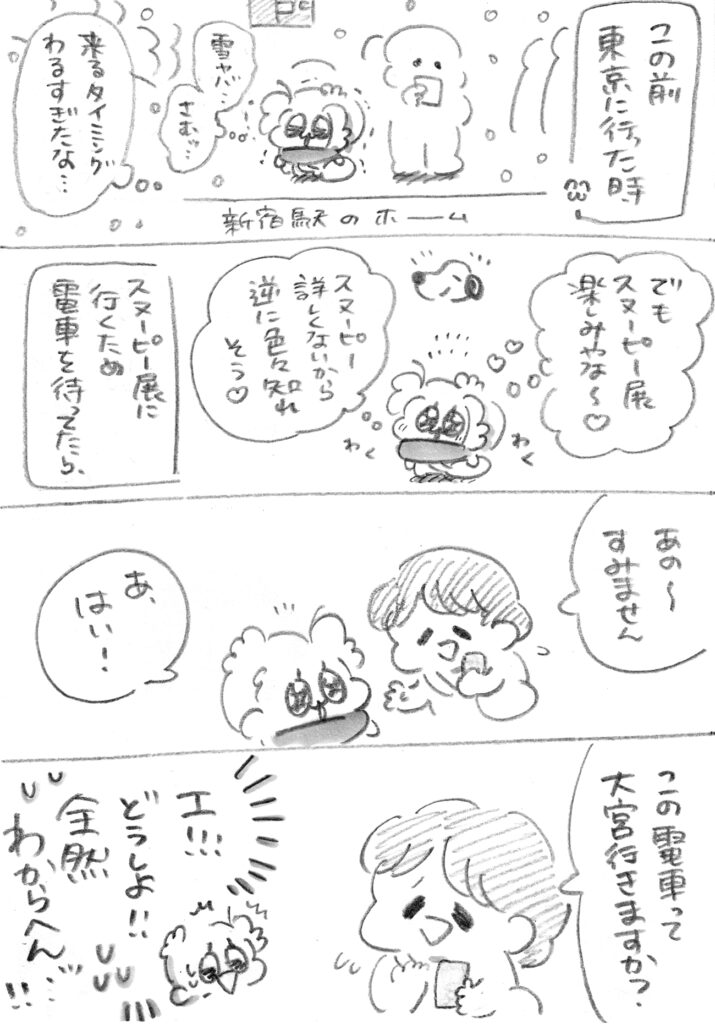 この前
東京に行った時
雪ヤバ…
さむッ…
来るタイミング
わるすぎたな…
新宿駅のホーム
でも
スヌーピー展
楽しみやな〜♡
スヌーピー
詳しくないから
逆に色々知れ
そう♡
わく
わく
スヌーピー展に
行くため
電車を待ってたら、
あの〜
すみません
あ、
はい!
この電車って
大宮行きますか?
エ!!!
どうしよ!!
全然
わからへん!!